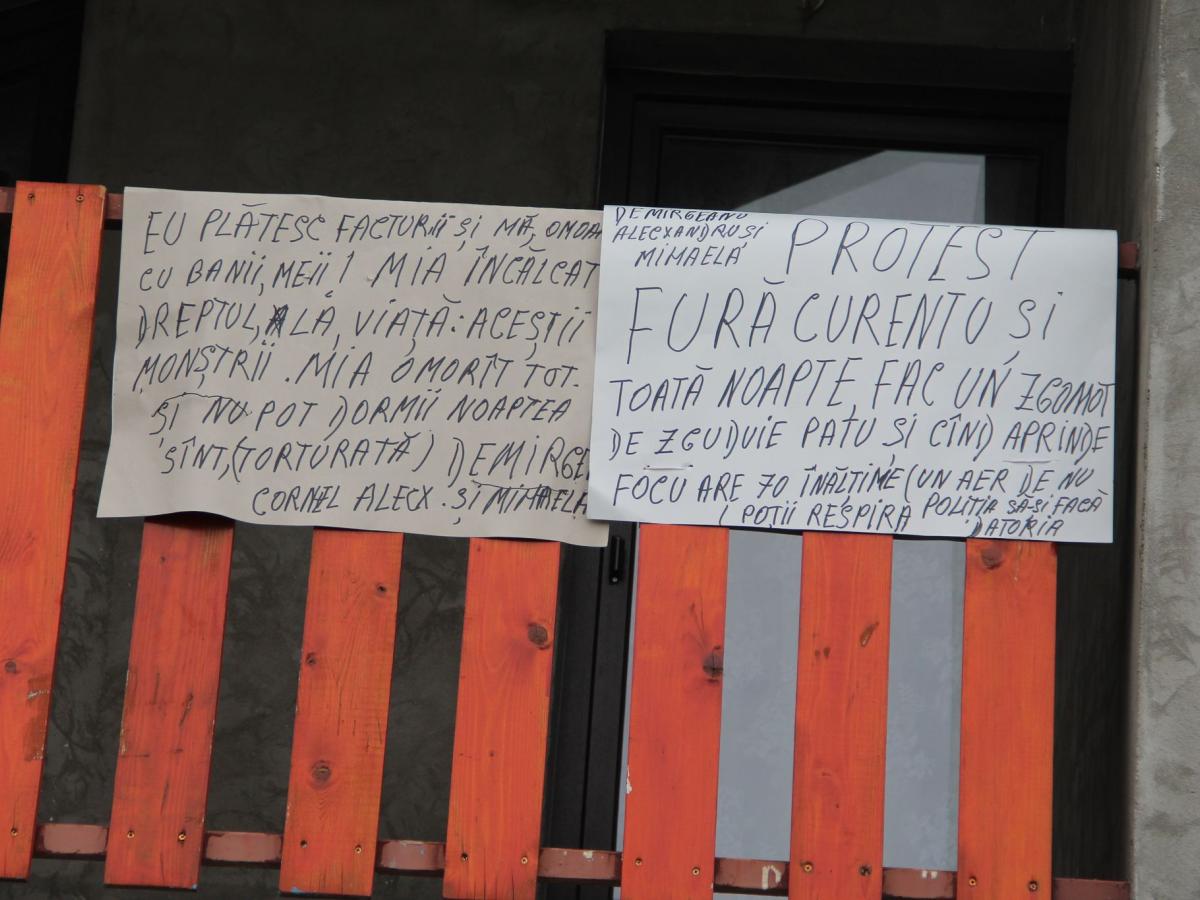 EU PLĂTESC FACTURII ȘI MĂ, OMOA
CU BANII, MEII! MIA ÎNCĂLCAT
DREPTUL, LĂ, VIAȚĂ: ACEȘTII
MONȘTRII. MIA OMORÎT TOT.
ȘI NU POT DORMII NOAPTEA
SÎNT, (TORTURATĂ) DEMIRGE
CORNEL ALECX. ȘI MIHAELA
DEMIRGEANU
ALECXANDRU ȘI
MIHAELA
PROTEST
FURĂ CURENTU ȘI
TOATĂ NOAPTE, FAC UN ZGOMOT
DE ZGUDUIE PATU, ȘI CÎND APRINDE
FOCU ARE 70 ÎNĂLȚIME (UN AER DE NU
(POȚII RESPIRA POLIȚIA SĂ-ȘI FACĂ
DATORIA